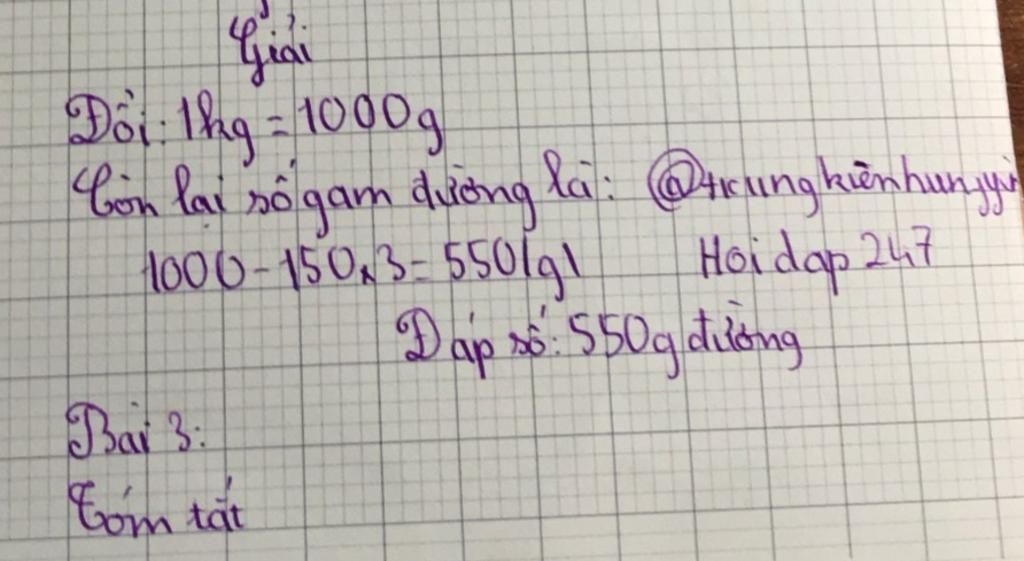 Giải
Đổi: 1kg = 1000g
Còn lại số gam đường là: @trungkiênhungy
1000 - 150 x 3 = 550(g)
Hoidap 247
Đáp số: 550g đường
Bài 3:
Tóm tắt